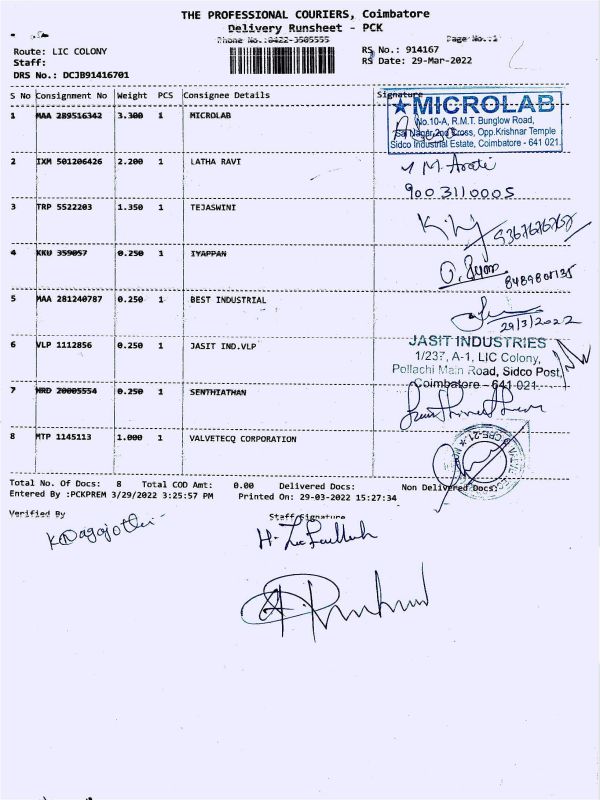 THE PROFESSIONAL COURIERS, Coimbatore
Delivery Runsheet - PCK
Phone No.:0422-3505555 Page No.:1
Route: LIC COLONY RS No.: 914167
Staff: RS Date: 29-Mar-2022
DRS No.: DCJB91416701
S No Consignment No Weight PCS Consignee Details Signature
1 MAA 289516342 3.300 1 MICROLAB
MICROLAB
No.10-A, R.M.T. Bunglow Road,
Sai Nagar 2nd Cross, Opp.Krishnar Temple
Sidco Industrial Estate, Coimbatore - 641 021.
2 IXM 501206426 2.200 1 LATHA RAVI
9003110005
3 TRP 5522203 1.350 1 TEJASWINI
4 KKU 359057 0.250 1 IYAPPAN
8489801135
5 MAA 281240787 0.250 1 BEST INDUSTRIAL
29/3/2022
6 VLP 1112856 0.250 1 JASIT IND.VLP
JASIT INDUSTRIES
1/237, A-1, LIC Colony,
Pollachi Main Road, Sidco Post,
Coimbatore - 641 021.
7 NRD 20005554 0.250 1 SENTHIATHAN
8 MTP 1145113 1.000 1 VALVETECQ CORPORATION
CBE-21
Total No. Of Docs: 8 Total COD Amt: 0.00 Delivered Docs: Non Delivered Docs:
Entered By :PCKPREM 3/29/2022 3:25:57 PM Printed On: 29-03-2022 15:27:34
Verified By Staff Signature